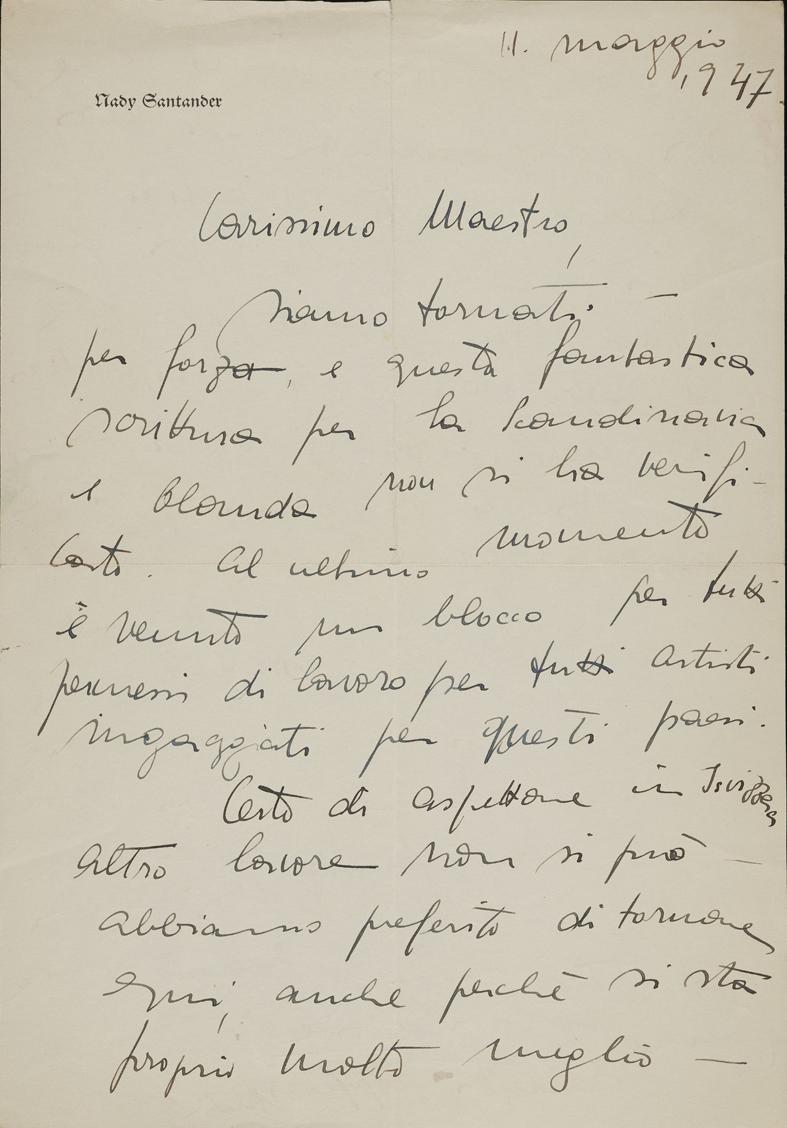 11. maggio
1947.
Nady Santander
Carissimo Maestro,
siamo tornati —
per forza, e questa fantastica
scrittura per la Scandinavia
e Olanda non si ha verifi-
cato. Al ultimo momento
è venuto un blocco per tutti
permessi di lavoro per tutti artisti
ingaggiati per questi paesi.
Certo di aspettare in Isvizzera
altro lavoro non si può —
abbiamo preferito di tornare
qui, anche perchè si sta
proprio molto meglio —